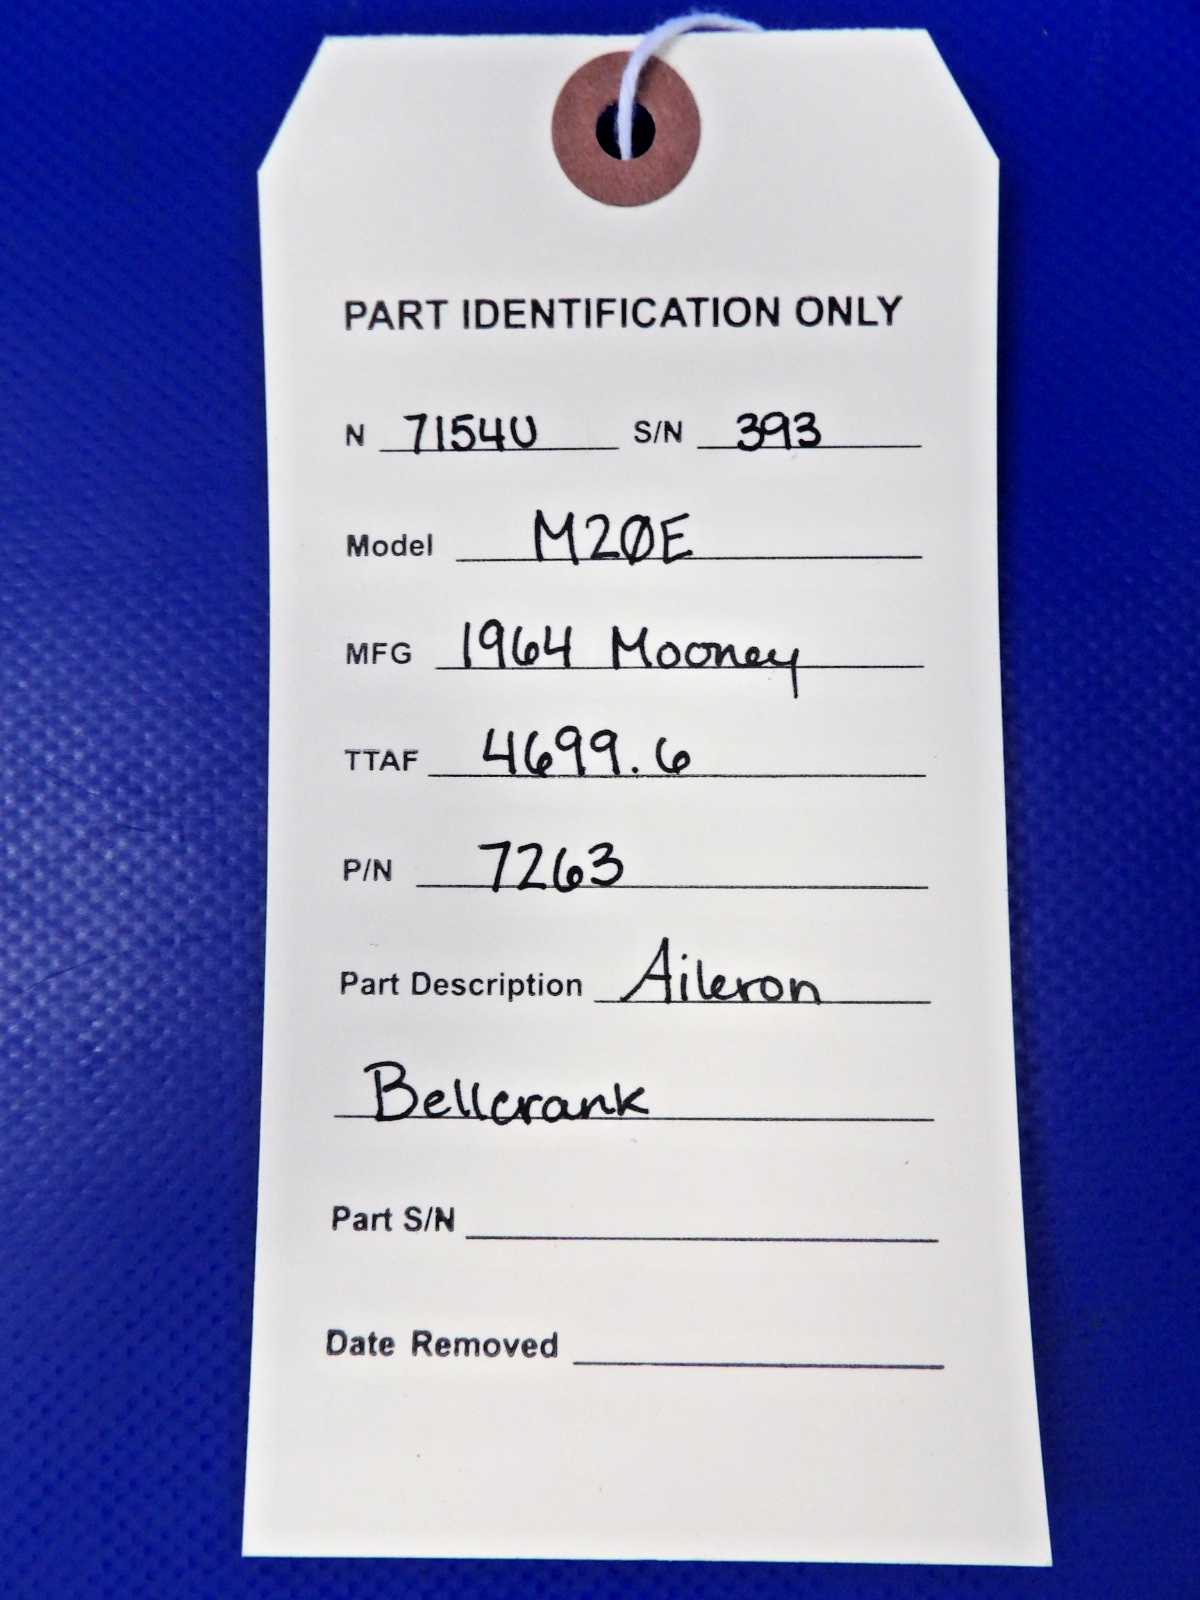 PART IDENTIFICATION ONLY
N 7154U S/N 393
Model M20E
MFG 1964 Mooney
TTAF 4699.6
P/N 7263
Part Description Aileron
Bellcrank
Part S/N
Date Removed